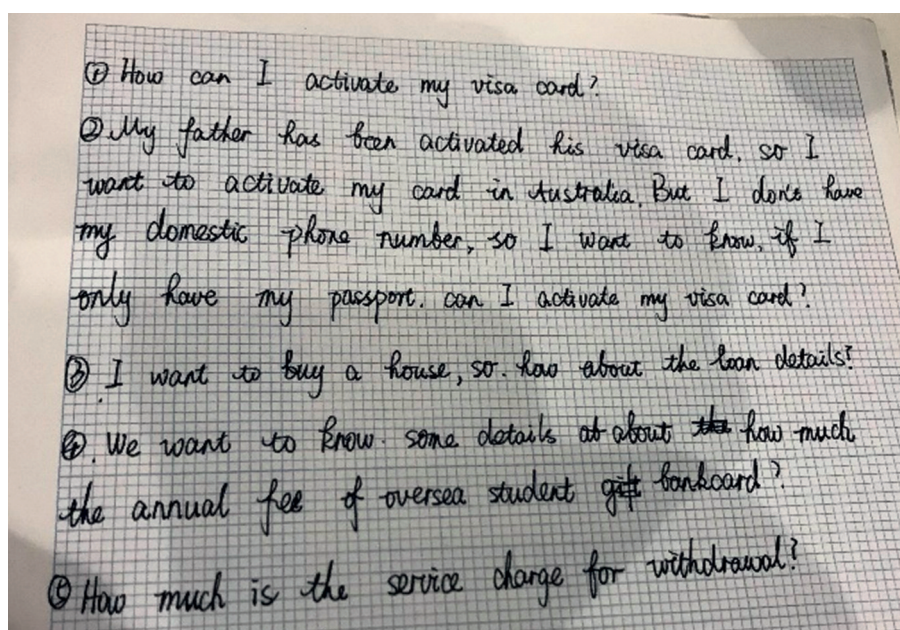 ① How can I activate my visa card?
② My father has been activated his visa card. so I
want to activate my card in Australia. But I don't have
my domestic phone number, so I want to know, if I
only have my passport. can I activate my visa card?
③ I want to buy a house, so. how about the loan details?
④. We want to know. some details ab about the how much
the annual fee of oversea student gift bankcard?
⑤ How much is the service charge for withdrawal?